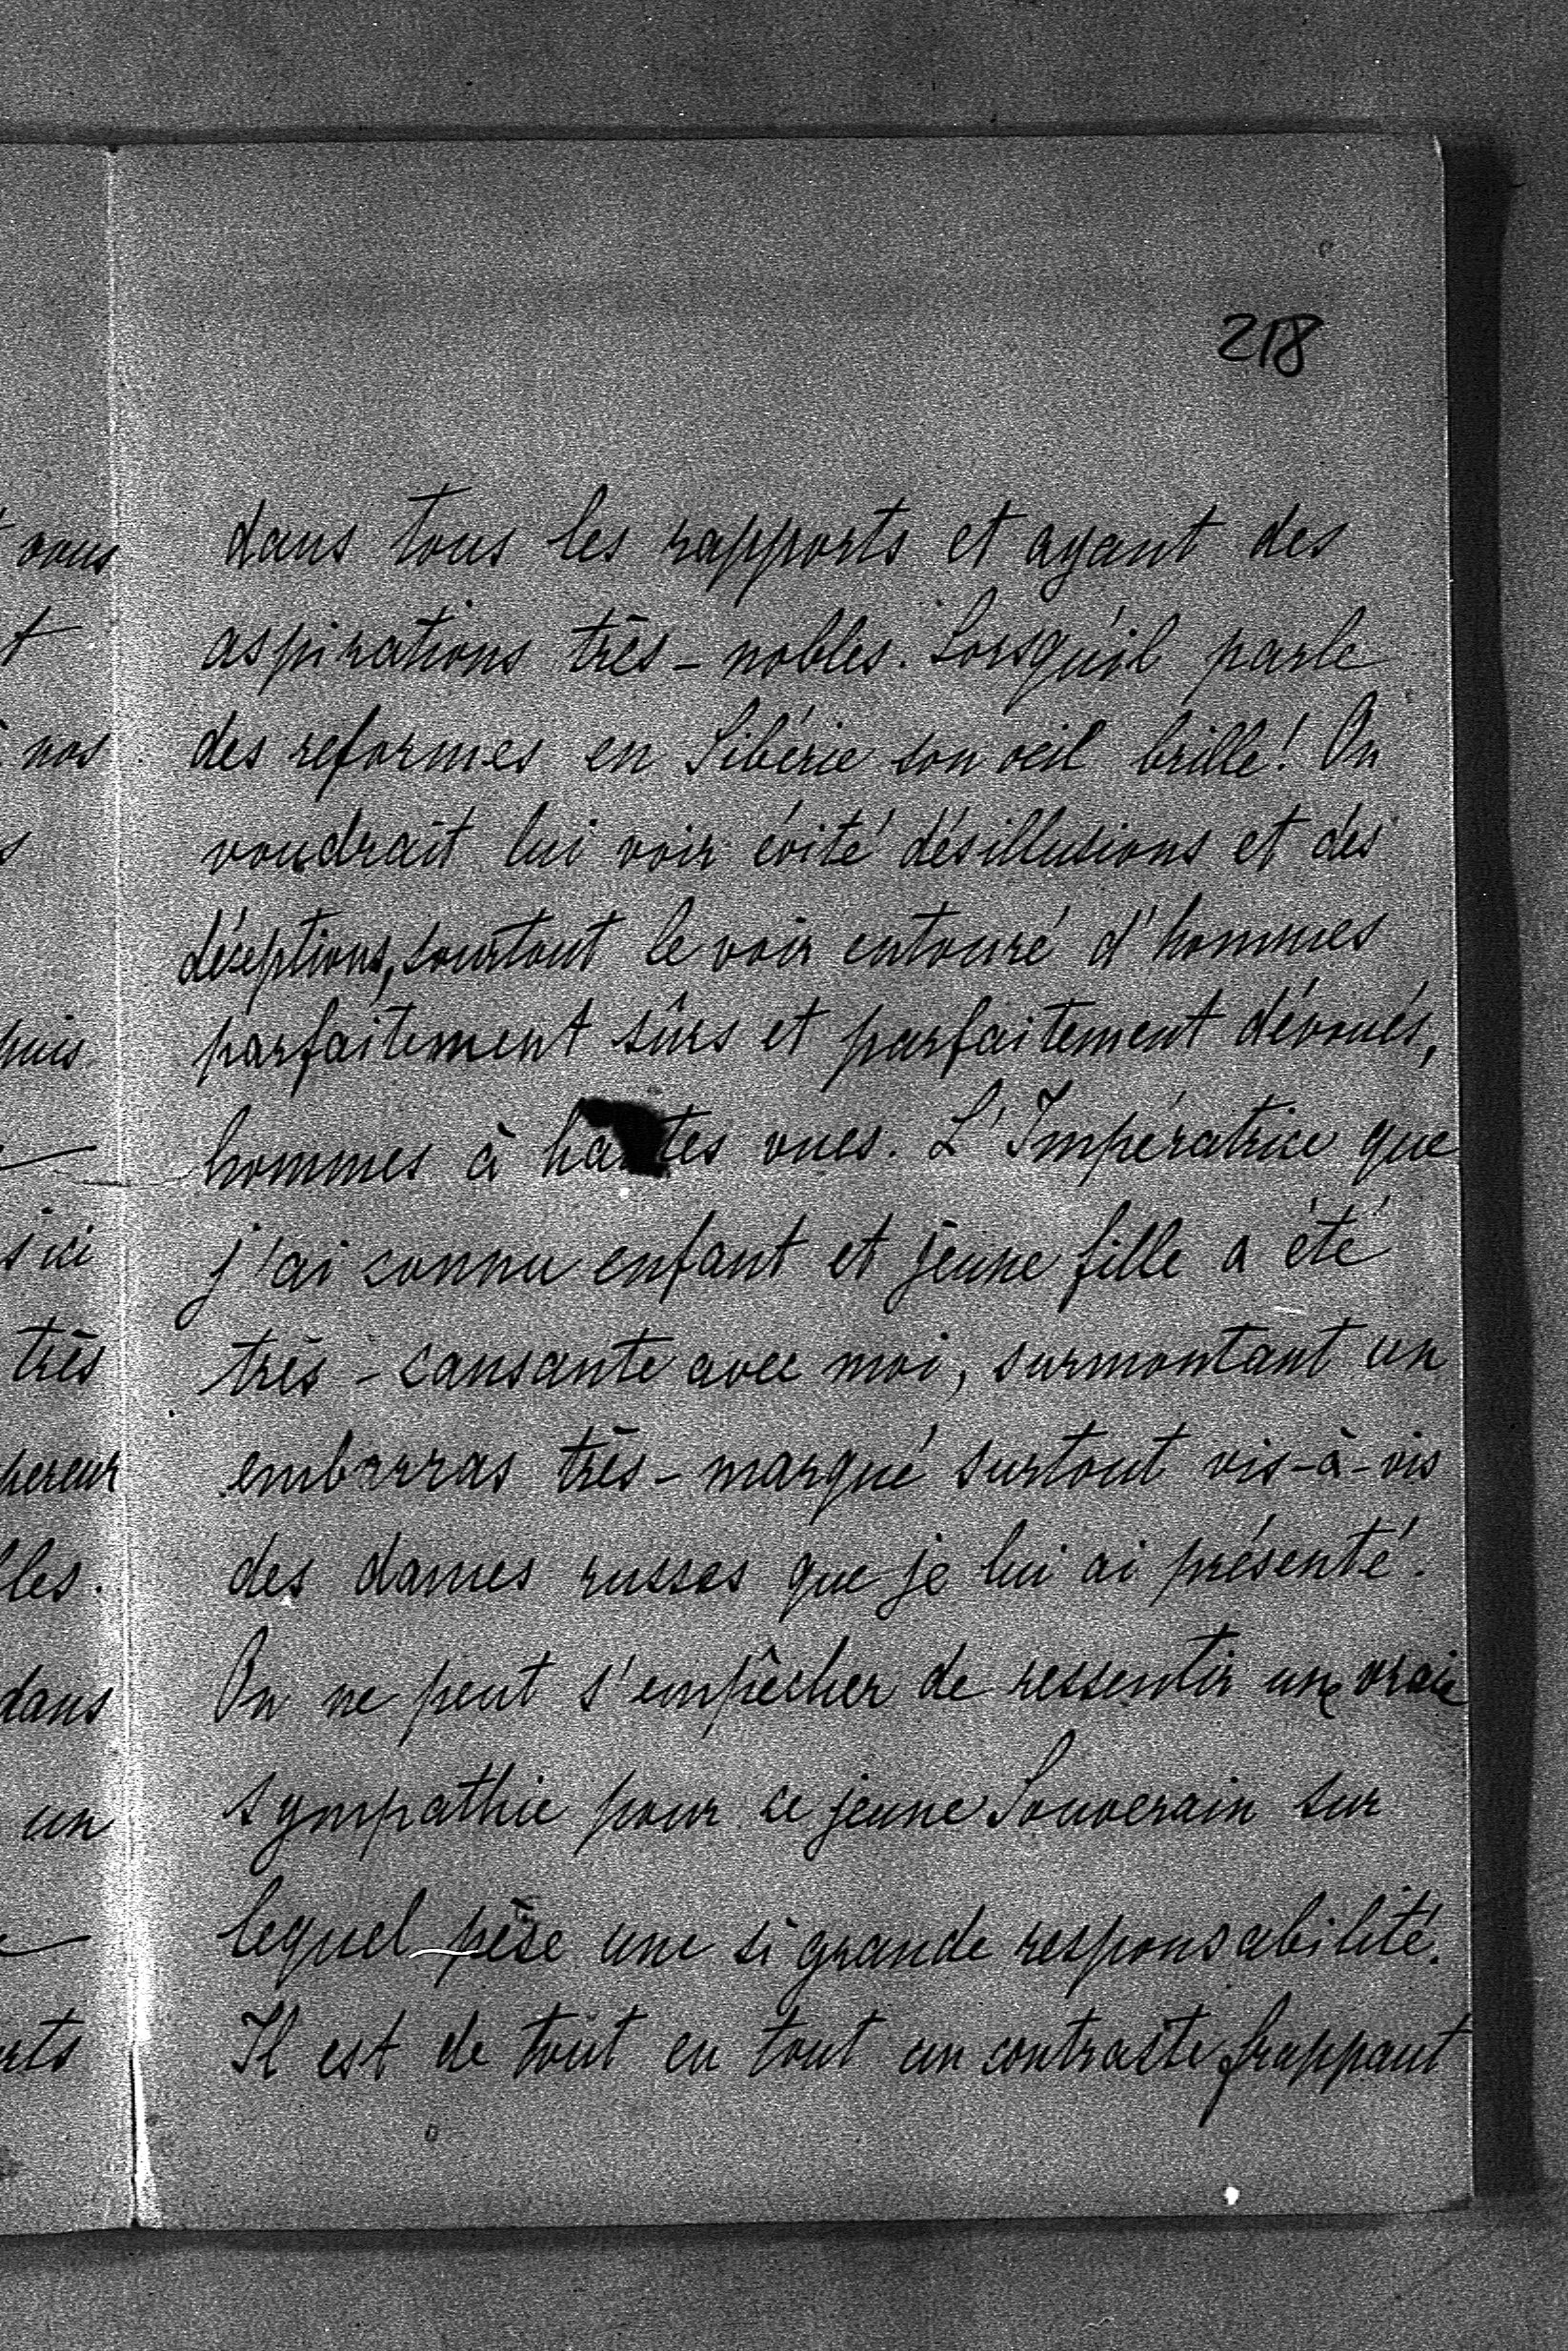 218
dans tous les rapports et ayant des
aspirations très-nobles. Lorsqu'il parle
des reformes en Sibérie son oeil brille! On
voudrait lui voir évité désillusions et des
déceptions, sourtout le voir entouré d'hommes
parfaitement sûrs et parfaitement dévoués,
hommes à hautes vues. L'Impératrice que
j'ai connu enfant et jeune fille a été
très-causante avec moi, surmontant un
embarras très-marqué surtout vis-à-vis
des dames russes que je lui ai présenté.
On ne peut s'empêcher de ressentir une vraie
sympathie pour ce jeune Souverain sur
lequel pèse une si grande responsabilité.
Il est de tout en tout un contraste frappant